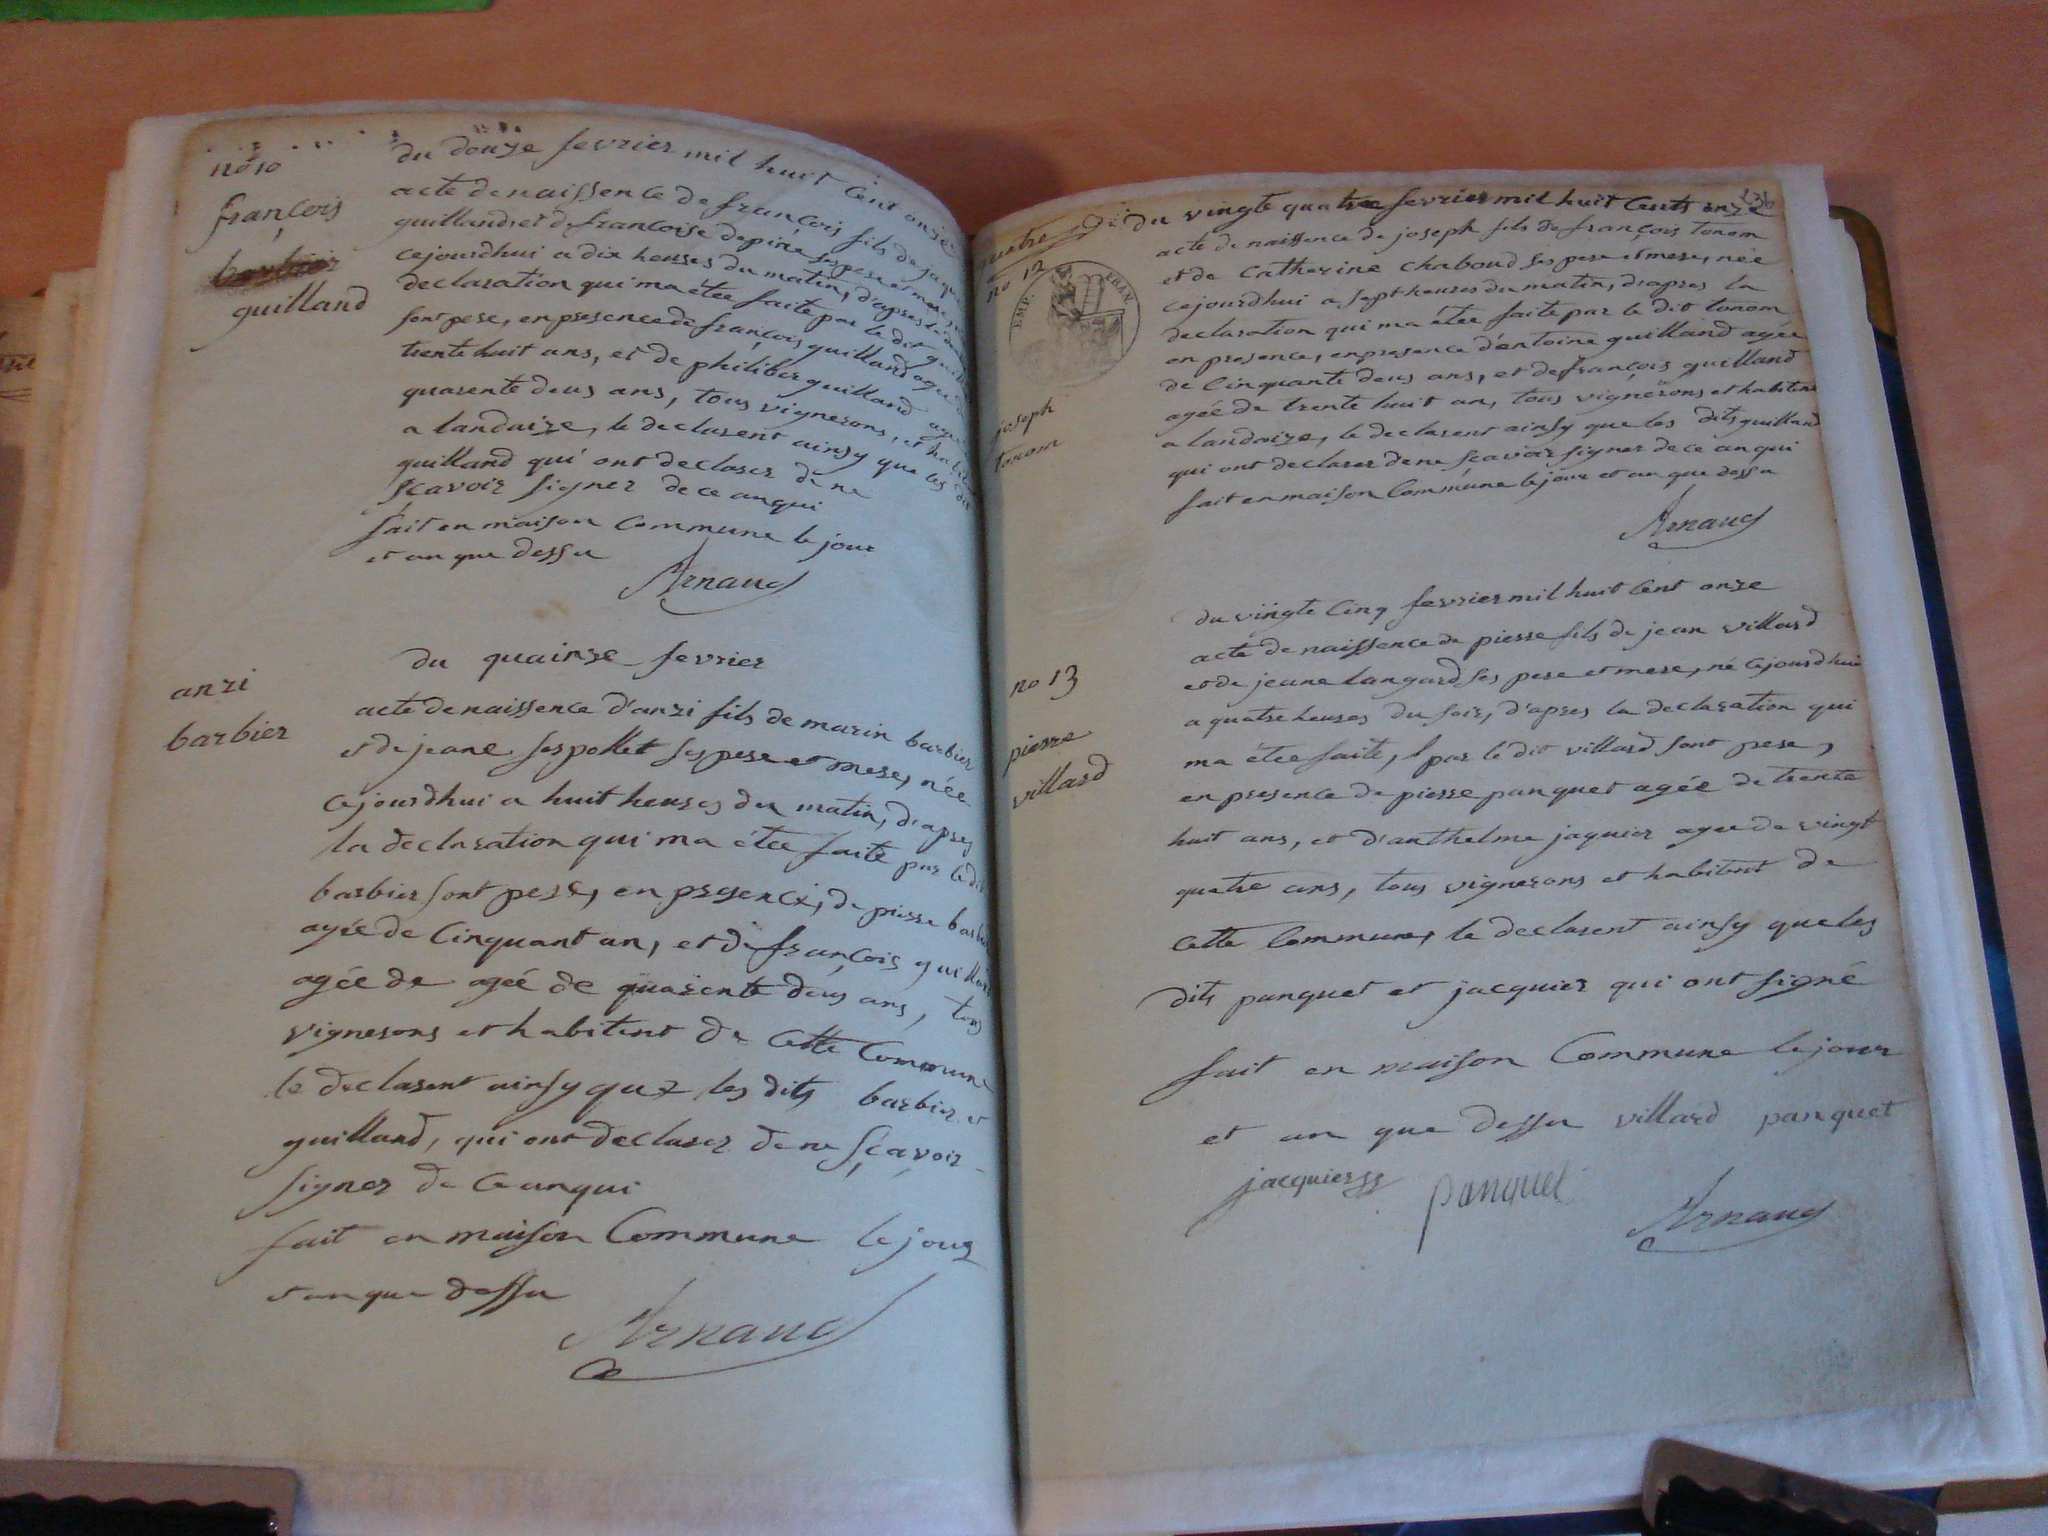 no 10
françois
guilland
du douze fevrier mil huit Cent onze
acte de naissence de françois fils de jaque
guilland et de francoise depine ses pere et mere
cejourdhui a dix heures du matin, d'apres
declaration qui ma étee faite par le dit
sont pere, en presence de françois guilland agée
trente huit ans, et de philiber guilland
quarente deus ans, tous vignerons, et
a landaize, le declarent ainsy que les dit
guilland qui ont declarer de ne
sçavoir signer de ce anqui
fait en maison Commune le jour
et an que dessu
Arnaud
anri
barbier
du quainze fevrier
acte de naissence d'anri fils de marin barbier
et de jeane pollet ses pere et mere, née
cejourdhui a huit heures du matin, d'apres
la declaration qui ma étee faite par le dit
barbier sont pere, en presence, de pierre
agée de Cinquant an, et de françois guilland
agée de agée de quarente deus ans, tous
vignerons et habitent de Cette Commune
le declarent ainsy que les dits barbier et
guilland, qui ont declarer de ne sçavoir
signer de ce anqui
fait en maison Commune le jour
et an que dessu
Arnaud
no 12
EMP. FRAN.
joseph
tonom
du vingte quatre fevrier mil huit Cents onze
acte de naissence de joseph fils de françois tonom
et de Catherine chaboud ses pere et mere, née
cejourdhui a sept heures du matin, d'apres la
declaration qui ma étee faite par le dit tonom
en presence, en presence d'entoine guilland agée
de Cinquante deus ans, et de françois guilland
agée de trente huit an, tous vignerons et habitent
a landaize, le declarent ainsy que les dits guilland
qui ont declarer de ne scavoir signer de ce anqui
fait en maison Commune le jour et an que dessu
Arnaud
no 13
pierre
villard
du vingte Cinq fevrier mil huit Cent onze
acte de naissence de pierre fils de jean villard
et de jeane langard ses pere et mere, né cejourdhui
a quatre heures du soir, d'apres la declaration qui
ma étee faite, par le dit villard sont pere,
en presence de pierre panquet agée de trente
huit ans, et d'anthelme jaquier agee de vingt
quatre ans, tous vignerons et habitent de
Cette Commune, le declarent ainsy que les
dits panquet et jacquier qui ont signé
fait en maison Commune le jour
et an que dessu villard panquet
jacquier panquet
Arnaud